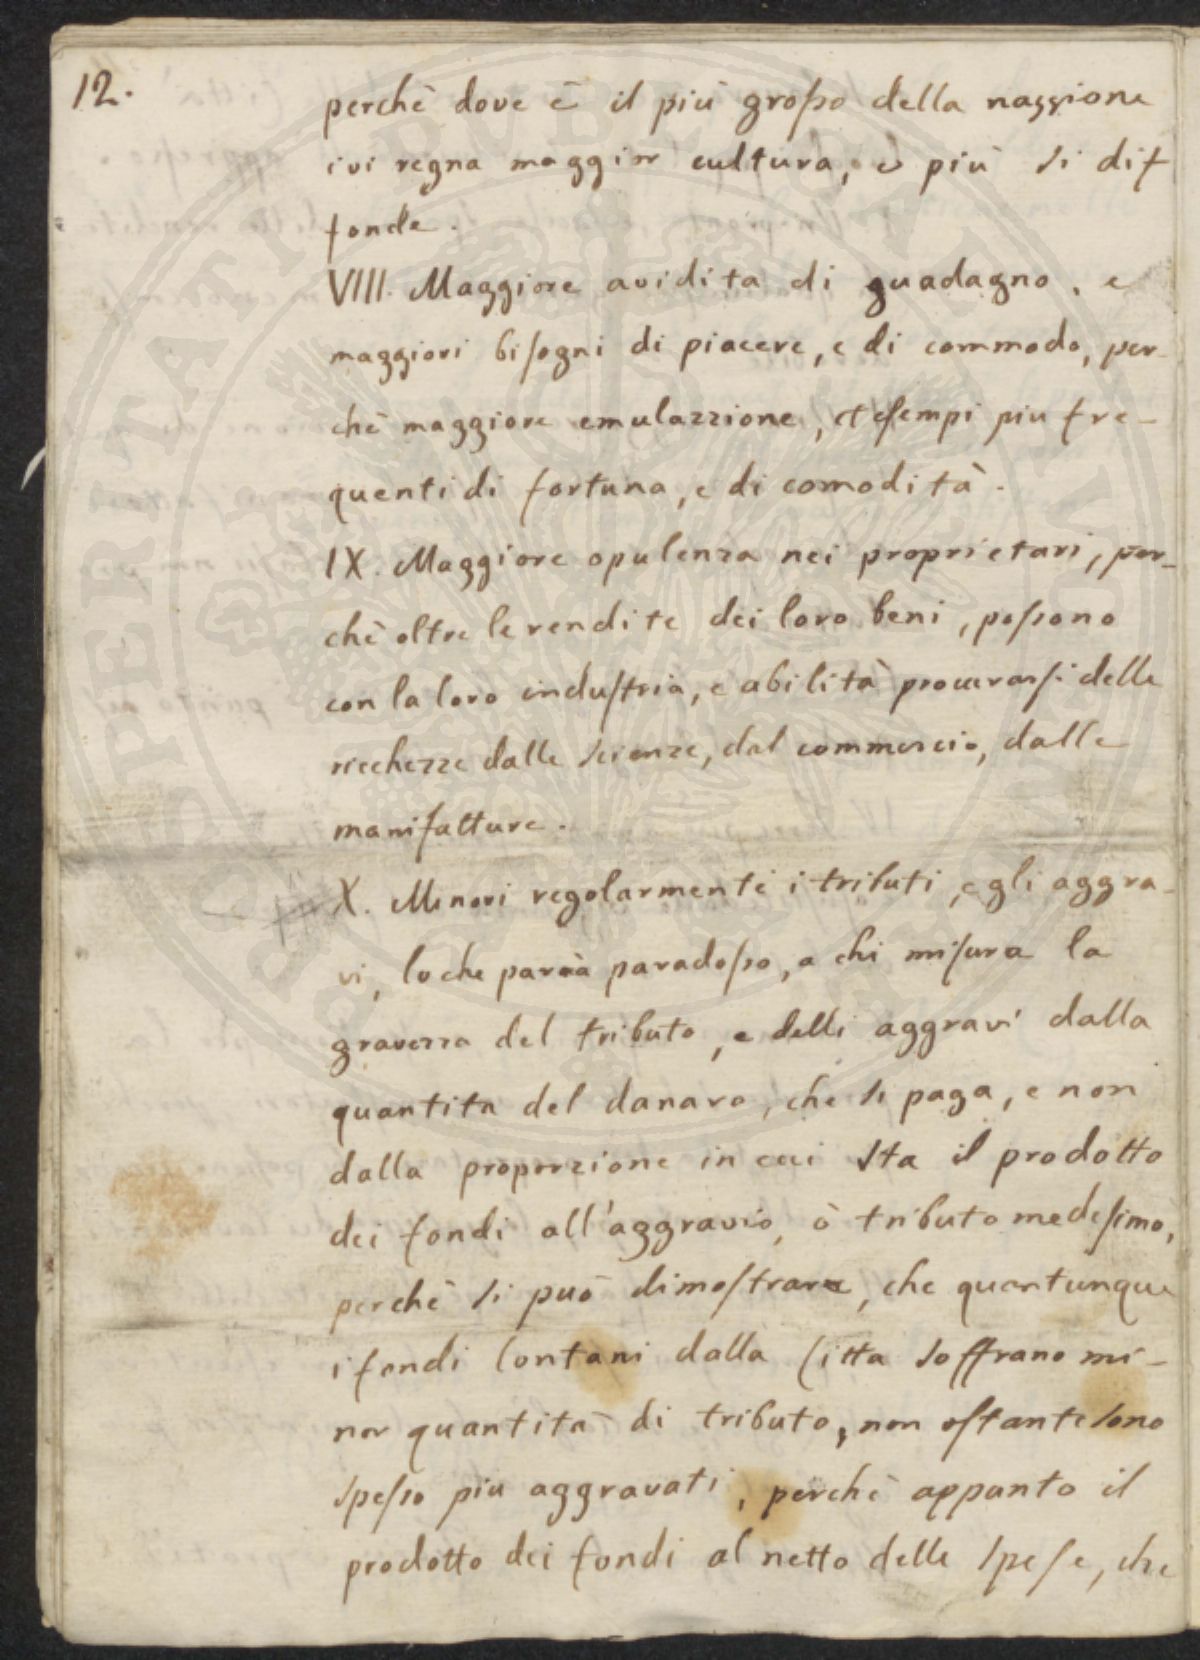 12.
perchè dove è il più grosso della nazzione
ivi regna maggior cultura, e più si dif
fonde.
VIII. Maggiore avidita di guadagno, e
maggiori bisogni di piacere, e di commodo, per-
chè maggiore emulazzione, et esempi piu fre-
quenti di fortuna, e di comodità.
IX. Maggiore opulenza nei proprietari, per-
chè oltre le rendite dei loro beni, possono
con la loro industria, e abilità procurarsi delle
ricchezze dalle scienze, dal commercio, dalle
manifatture.
X. Minori regolarmente i tributi, e gli aggra-
vi, loche parrà paradosso, a chi misura la
gravezza del tributo, e delli aggravi dalla
quantita del danaro, che si paga, e non
dalla proporzione in cui sta il prodotto
dei fondi all'aggravio, ò tributo medesimo,
perchè si può dimostrare, che quantunque
i fondi lontani dalla Citta soffrano mi-
nor quantità di tributo, non ostante sono
spesso piu aggravati, perchè appunto il
prodotto dei fondi al netto delle spese, che
PROSPERITATI PUBLICAE AUGENDAE